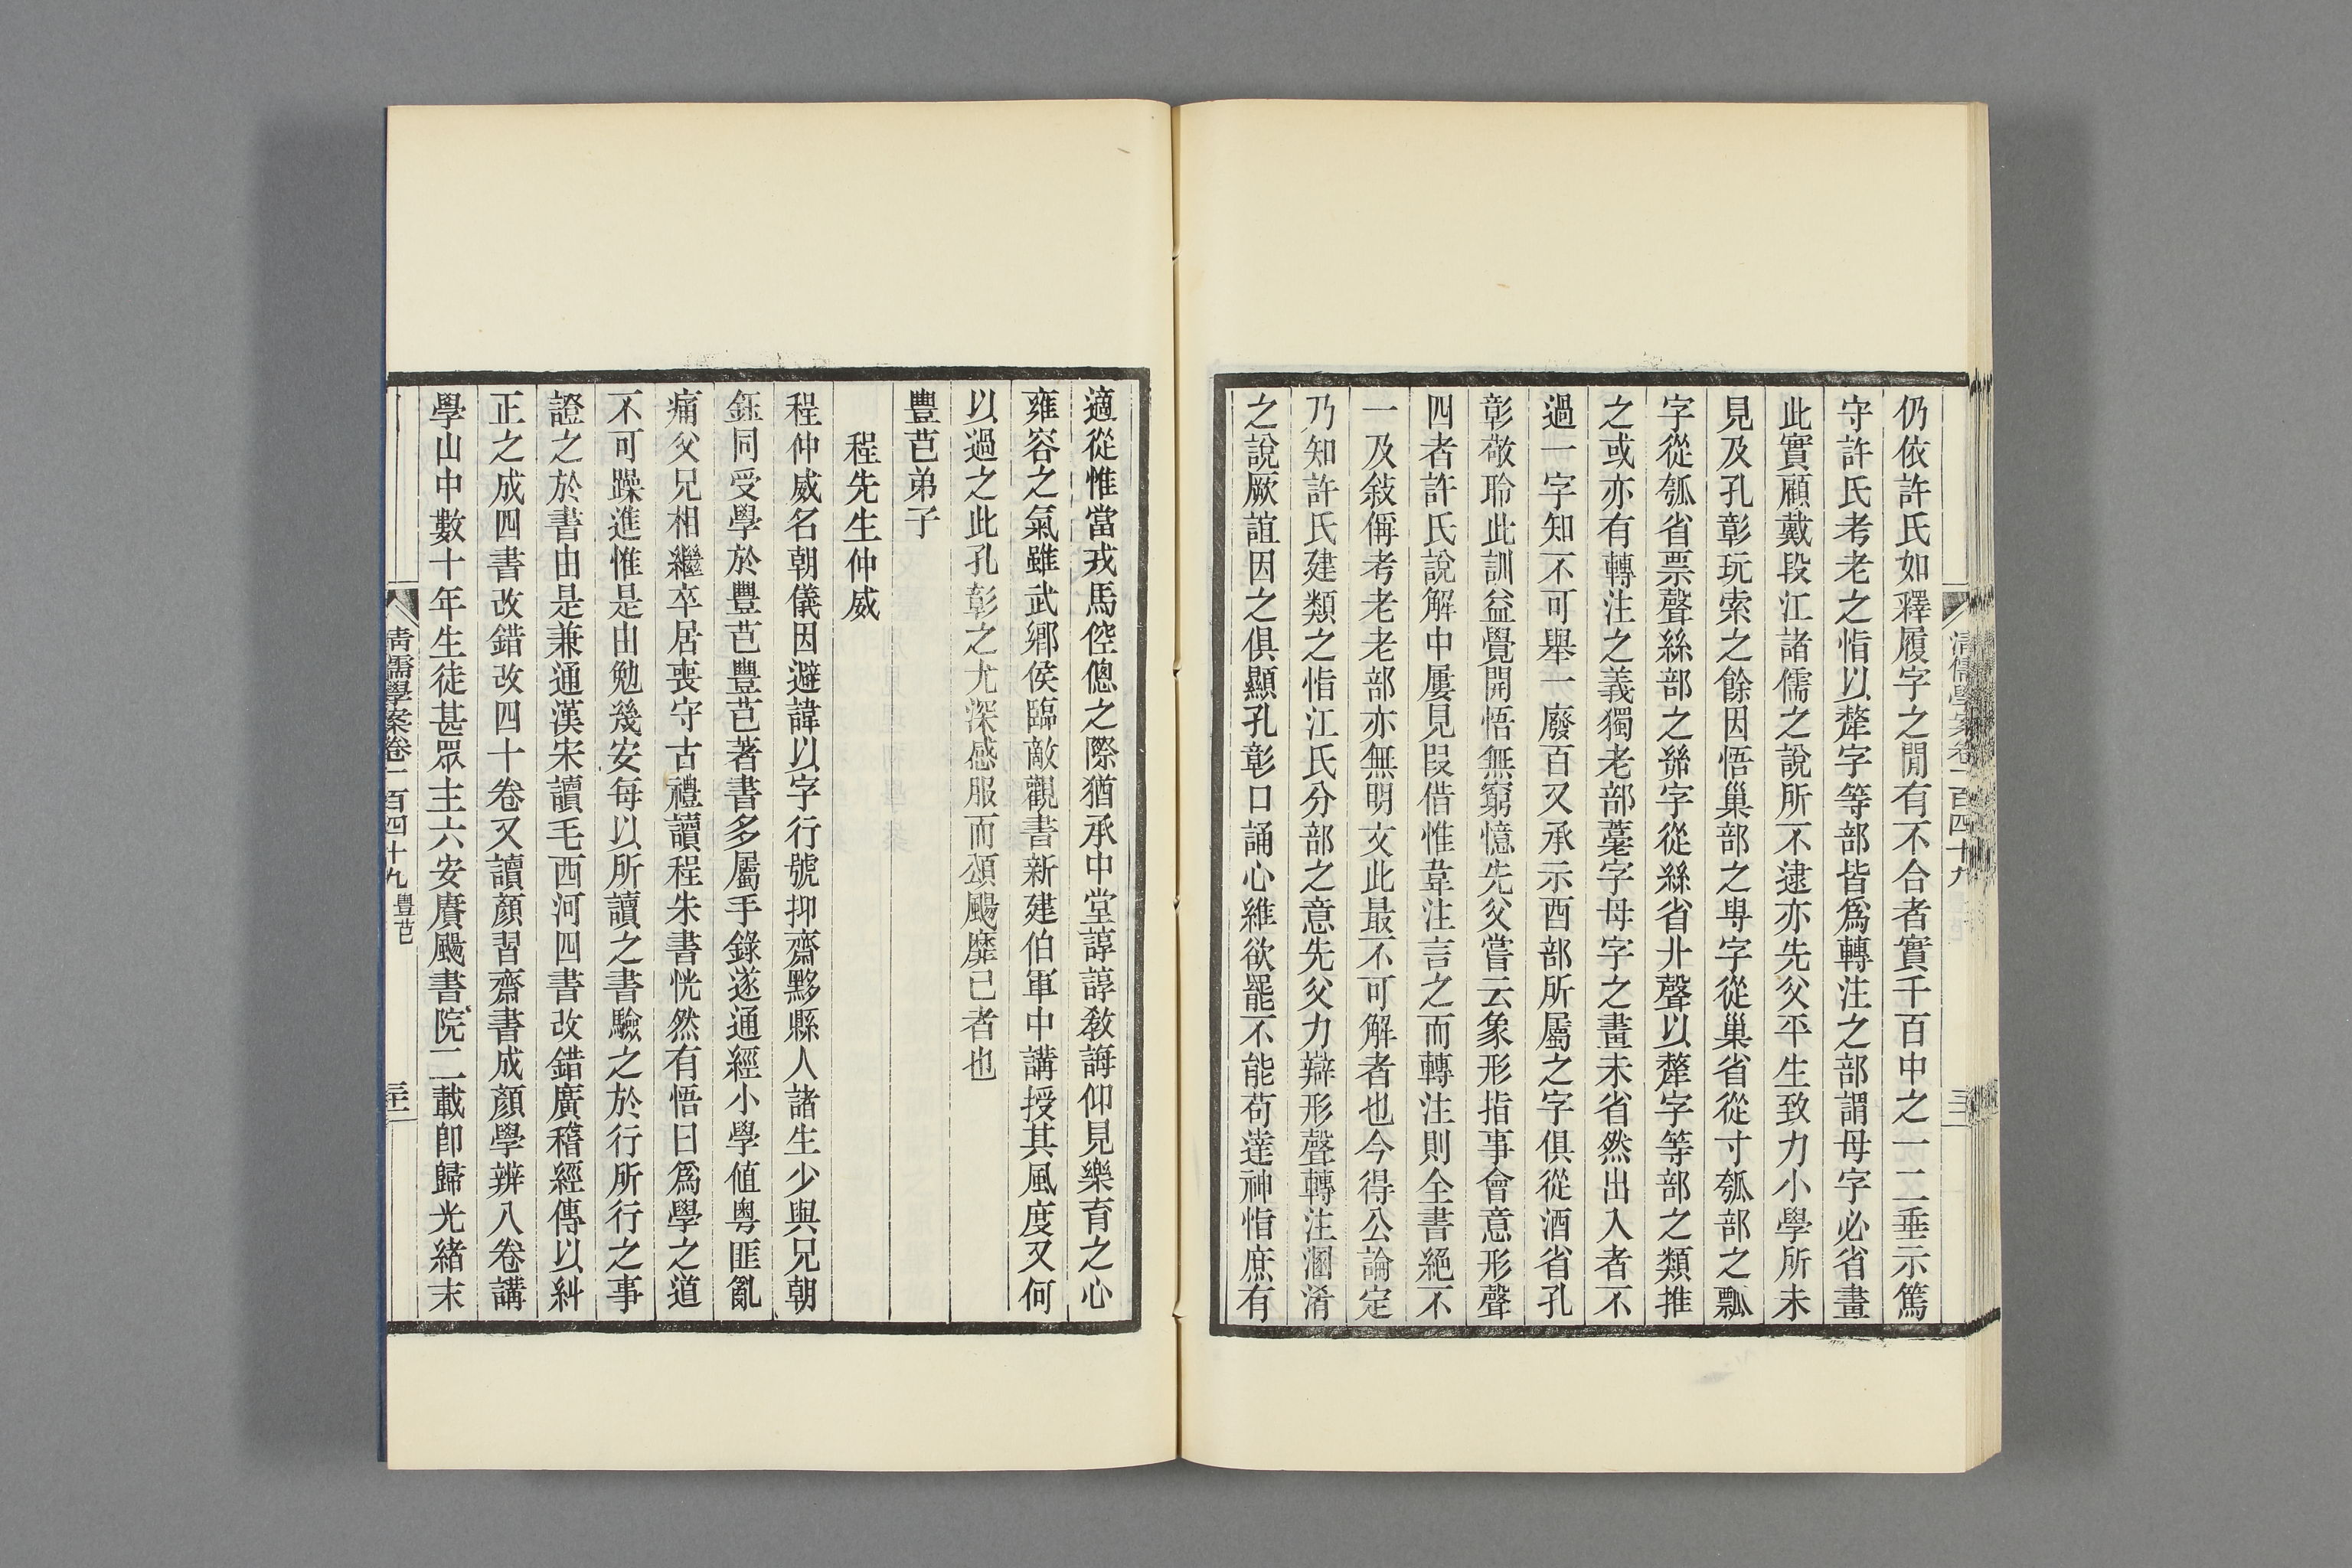 仍依許氏如釋履字之閒有不合者實千百中之一二垂示篤
守許氏考老之恉以犛字等部皆爲轉注之部謂母字必省畫
此實顧戴段江諸儒之說所不逮亦先父平生致力小學所未
見及孔彰玩索之餘因悟巢部之𢾕字從巢省從寸瓠部之瓢
字從瓠省票聲絲部之𢇇字從絲省丱聲以犛字等部之類推
之或亦有轉注之義獨老部薹字母字之畫未省然出入者不
過一字知不可舉一廢百又承示酉部所屬之字俱從酒省孔
彰敬聆此訓益覺開悟無窮憶先父嘗云象形指事會意形聲
四者許氏說解中屢見叚借惟韋注言之而轉注則全書絕不
一及敍偁考老老部亦無明文此最不可解者也今得公論定
乃知許氏建類之恉江氏分部之意先父力辯形聲轉注溷淆
之說厥誼因之俱顯孔彰口誦心維欲罷不能苟達神恉庶有
清儒學案卷一百四十九
適從惟當戎馬倥傯之際猶承中堂諄諄敎誨仰見樂育之心
雍容之氣雖武鄉侯臨敵觀書新建伯軍中講授其風度又何
以過之此孔彰之尤深感服而頌颺靡已者也
豐芑弟子
程先生仲威
程仲威名朝儀因避諱以字行號抑齋黟縣人諸生少與兄朝
鈺同受學於豐芑豐芑著書多屬手錄遂通經小學値粵匪亂
痛父兄相繼卒居喪守古禮讀程朱書恍然有悟曰爲學之道
不可躁進惟是由勉幾安每以所讀之書驗之於行所行之事
證之於書由是兼通漢宋讀毛西河四書改錯廣稽經傳以糾
正之成四書改錯改四十卷又讀顏習齋書成顏學辨八卷講
學山中數十年生徒甚眾主六安賡颺書院二載卽歸光緒末
清儒學案卷一百四十九 豐芑